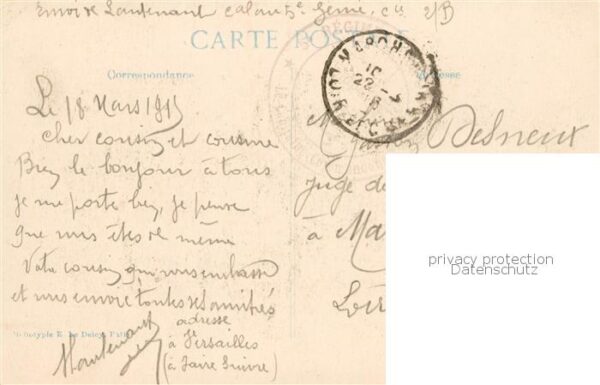 Envoi de Lieutenant Calau 5e Genie, Cie 2/B
CARTE POSTALE
Correspondance
Adresse
Le 18 Mars 1915
Cher cousin et cousine
Bien le bonjour à tous
je me porte bien, je pense
que vous êtes de même
Votre cousin qui vous embrasse
et vous envoie toutes ses amitiés
adresse
à Versailles
(à faire suivre)
M Gaston Desneux
juge de
à Ma
Loir
MARCHENOIR
LOIR ET CHER
privacy protection
Datenschutz